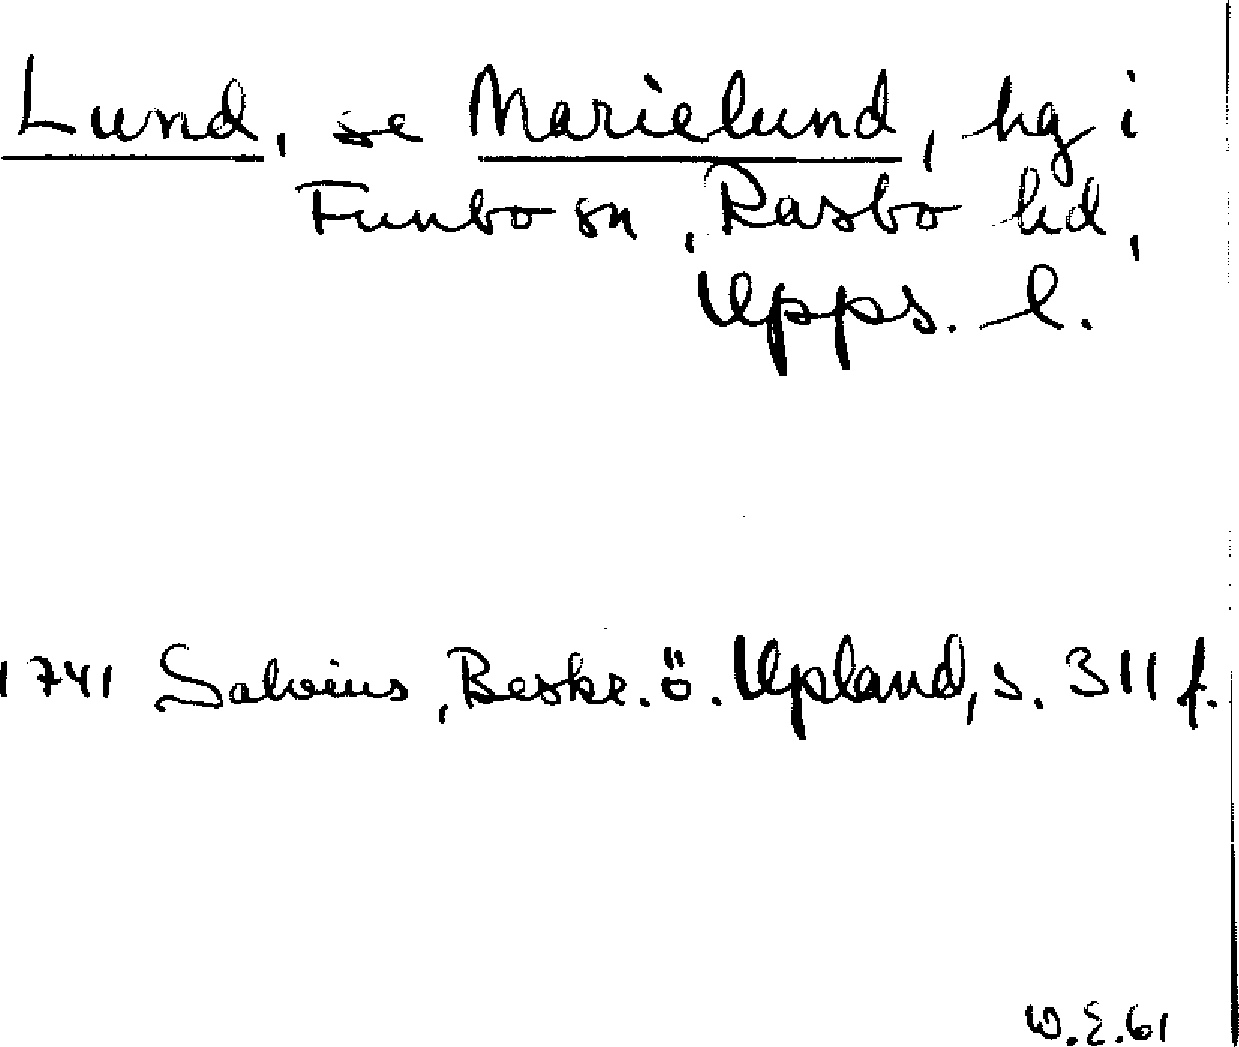 Lund, se Marielund, hg i
Funbo sn, Rasbo hd,
Upps. l.
1741 Salvius, Beskr. ö. Upland, s. 311 f.
W.E.61